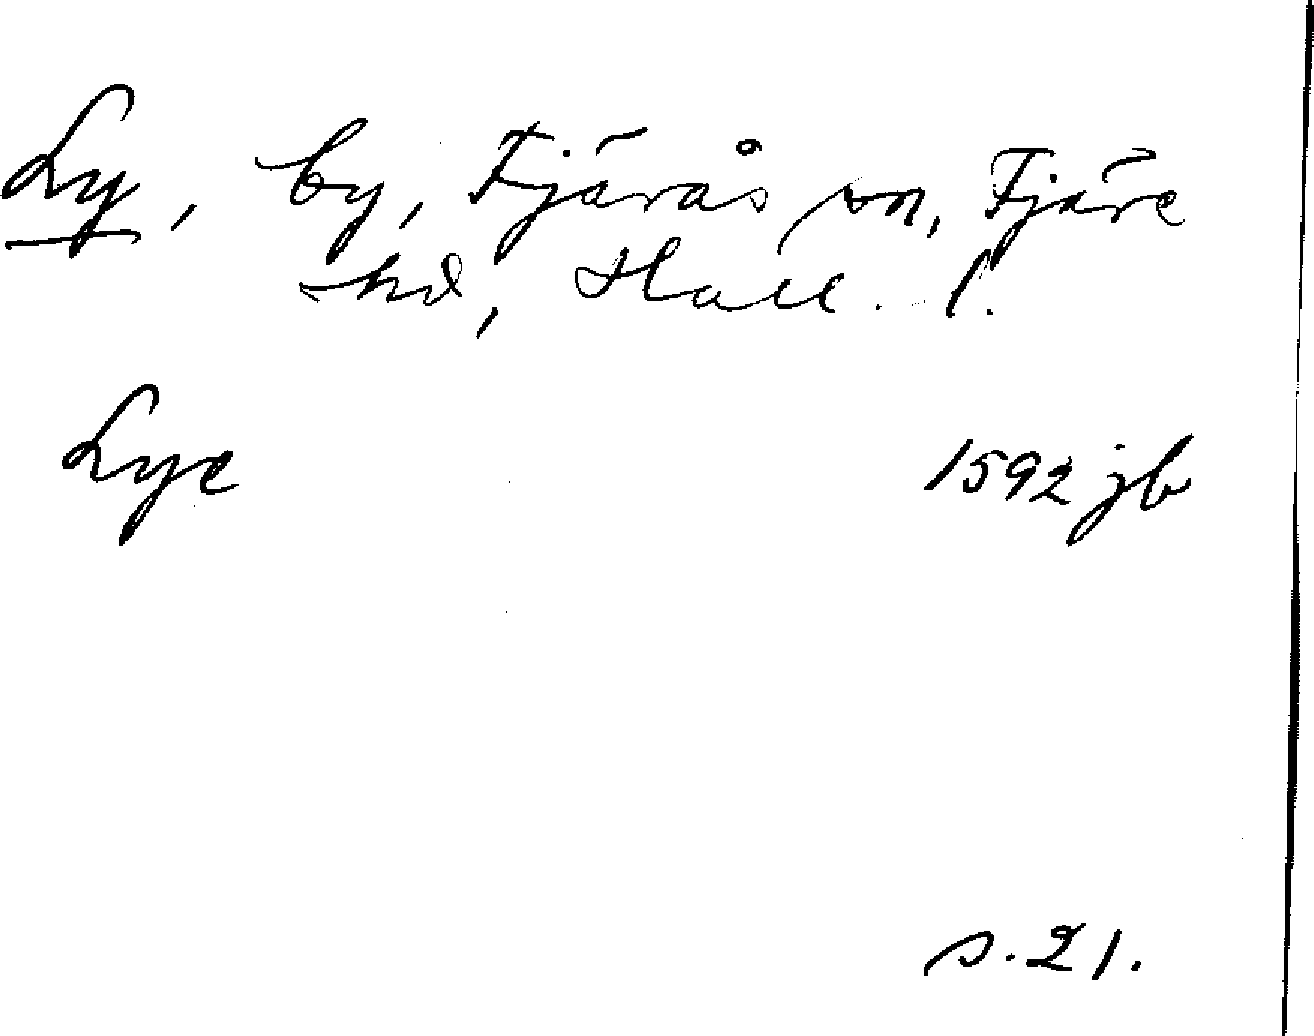 Ly, by, Fjärås sn, Fjäre
hd, Hall. l.
Lye 1592 jb
s. 21.